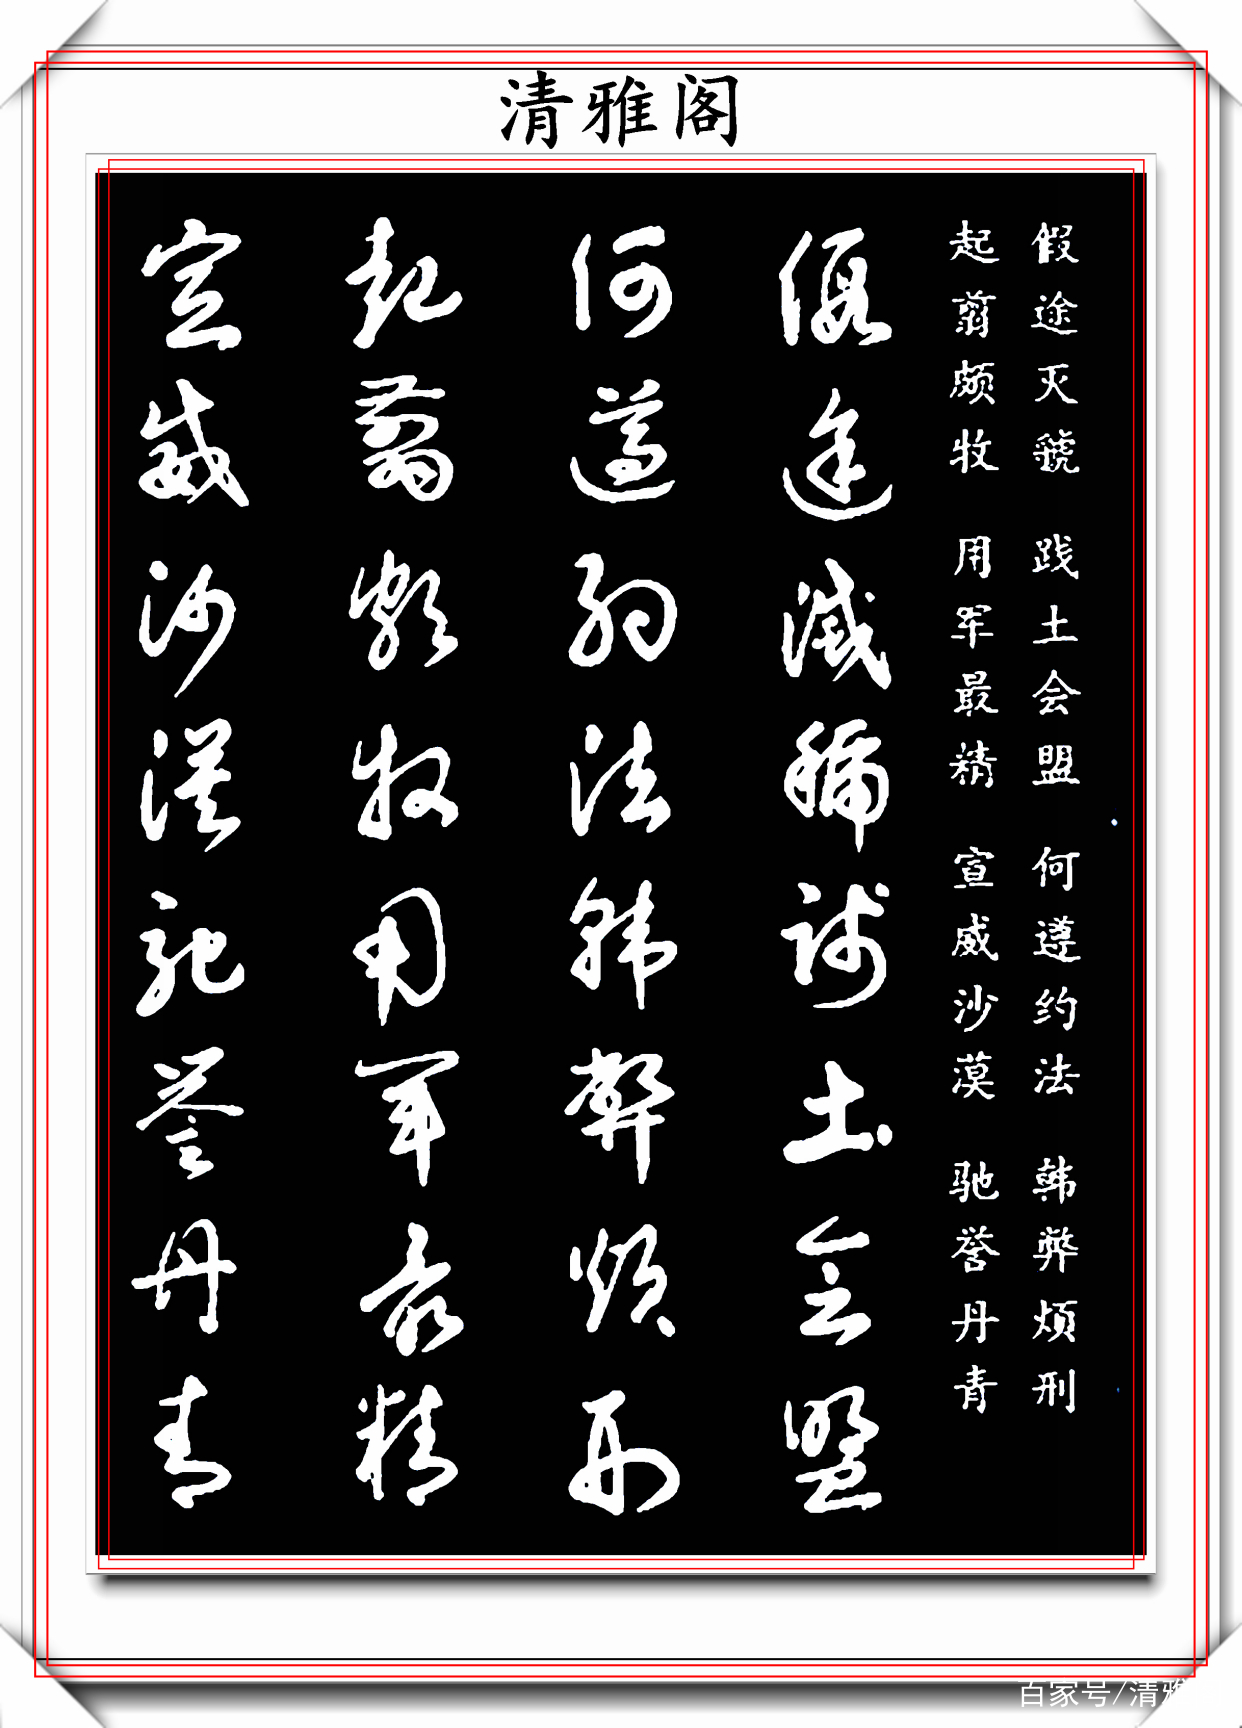 清雅阁
假途灭虢 践土会盟 何遵约法 韩弊烦刑
起翦颇牧 用军最精 宣威沙漠 驰誉丹青
假途滅虢踐土會盟
何遵約法韓弊煩刑
起翦頗牧用軍最精
宣威沙漠馳譽丹青
百家号/清雅